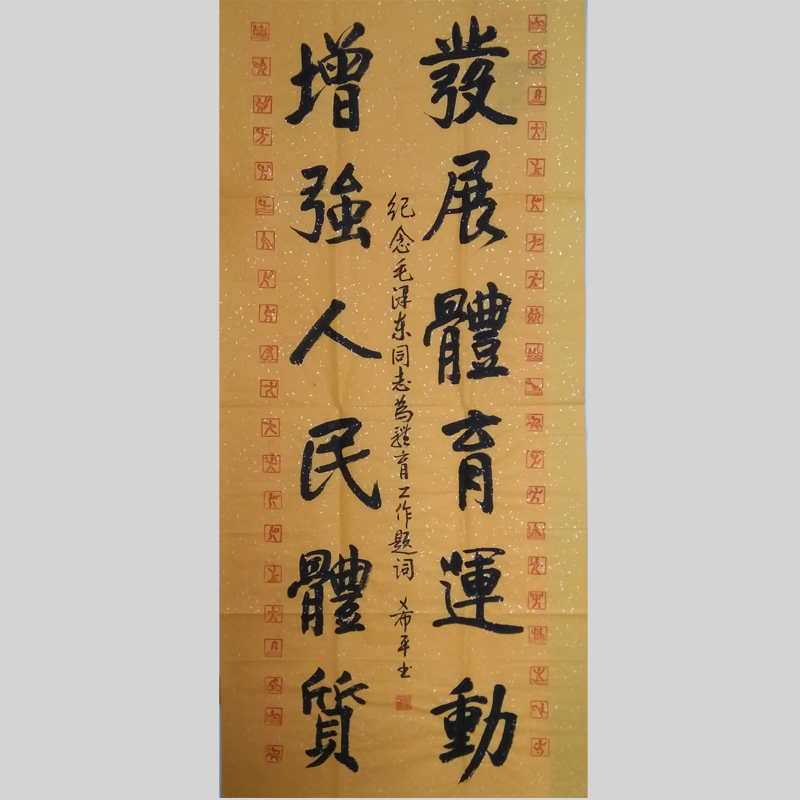 發展體育運動
增強人民體質
紀念毛澤东同志為體育工作題词
希平书